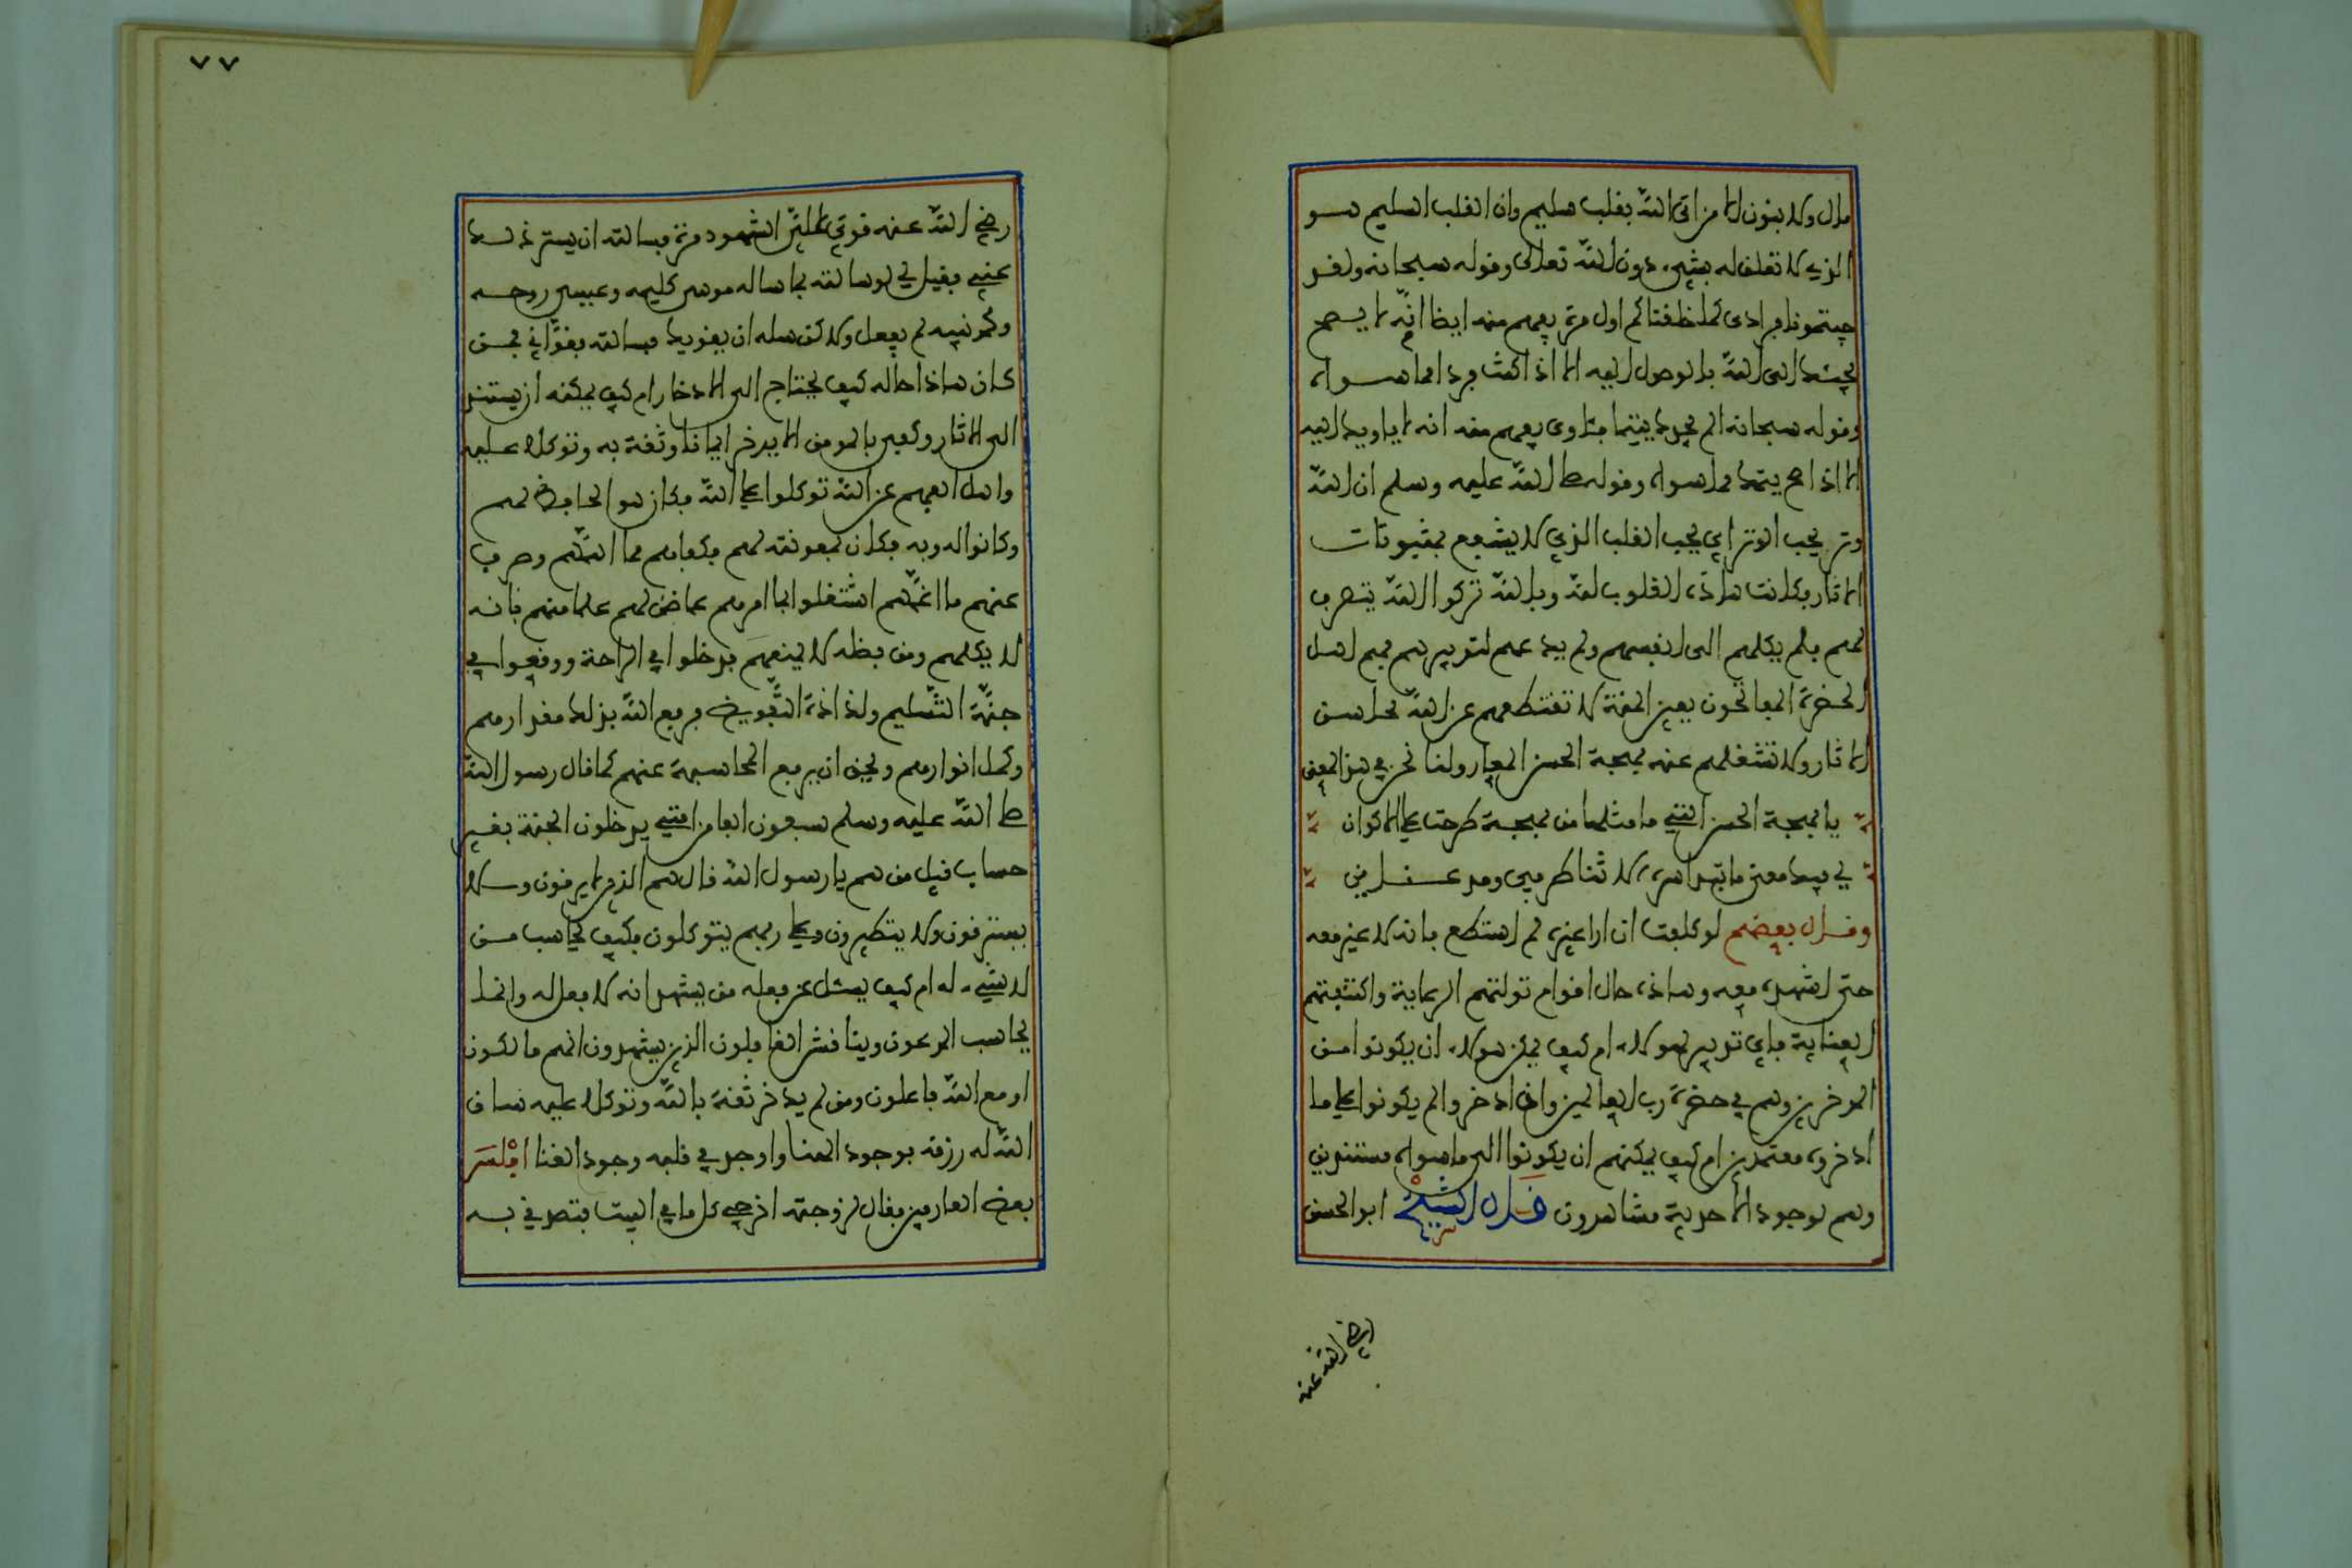 مال ولا بنون الا من اتى الله بقلب سليم وان القلب السليم هو
الذي لا تعلق له بشيء دون الله تعالى وقوله سبحانه ولقد
جيتمونا فرادى كما خلقناكم اول مرة يفهم منه ايضا انه لا يصح
مجيئك الى الله بالوصول اليه الا اذا كنت فردا مما سواه
وقوله سبحانه الم يجدك يتيما فئاوى يفهم منه انه لا ياويك اليه
الا اذا صح يتمك مما سواه وقوله صلى الله عليه وسلم ان الله
وتر يحب الوتر اي يحب القلب الذي لا يشفع بمثنويات
الاثار فكانت هاذه القلوب لله وبالله تركوا الله يتصرف
لهم فلم يكلهم الى انفسهم ولم يدعهم لتدبيرهم فهم اهل
الحضرة المفاتحون بعين المنة لا تقتطعهم عن الله محاسن
الاثار ولا تشغلهم عنه بهجة الحسن المعار ولنا نحن في هذا المعنى
يا بهجة الحسن التي ما مثلها من بهجة طرحت على الاكوان
لي فيك معنى ما تبدى سره الا ثنا طرفي ومد عناني
وقال بعضهم لو كلفت ان ارا غيره لم استطع فانه لا غير معه
حتى اشهده معه وهاذه حال اقوام تولتهم الرعاية واكتنفتهم
العناية فاي تدبير لهولاء ام كيف يمكن هولاء ان يكونوا من
المدخرين وهم في حضرة رب العالمين وان ادخروا لم يكونوا على ما
ادخروه معتمدين ام كيف يمكنهم ان يكونوا الى ما سواه مستندين
وهم لوجود الاحدية مشاهدون قال الشيخ ابو الحسن
رضي الله عنه
٧٧
رضي الله عنه قوي علي الشهود مرة فسالته ان يستر ذلك
عني فقيل لي لو سالته بما ساله موسى كليمه وعيسى روحه
ومحمد نبيه لم يفعل ولاكن سله ان يقويك فسالته فقواني فمن
كان هاذا حاله كيف يحتاج الى الادخار ام كيف يمكنه ان يستند
الى الاثار وكفى بالمومن الا يدخر ايمانا وثقة به وتوكلا عليه
واهل الفهم عن الله توكلوا على الله فكان هو الحافظ لهم
وكانوا له وبه فكان بمعونته لهم فكفاهم ما اهمهم وصرف
عنهم ما اغمهم اشتغلوا بما امرهم عما ضمن لهم علما منهم بانه
لا يكلهم ومن فضله لا يمنعهم فدخلوا في الراحة ووقعوا في
جنة التسليم ولذاذة التفويض فرفع الله بذلك مقدارهم
وكمل انوارهم وبحق ان يرفع المحاسبة عنهم كما قال رسول الله
صلى الله عليه وسلم سبعون الفا من امتي يدخلون الجنة بغير
حساب قيل من هم يا رسول الله قال هم الذين لا يرقون ولا
يسترقون ولا يتطيرون وعلى ربهم يتوكلون فكيف يحاسب من
لا شيء له ام كيف يسئل عن فعله من يشهد انه لا فعل له وانما
يحاسب المدعون ويناقش الغافلون الذين يشهدون انهم مالكون
او مع الله فاعلون ومن لم يدخر ثقة بالله وتوكلا عليه ساق
الله له رزقه بوجود الهنا واوجد في قلبه وجود الغنا افلس
بعض العارفين فقال لزوجته اخرجي كل ما في البيت فتصدقي به